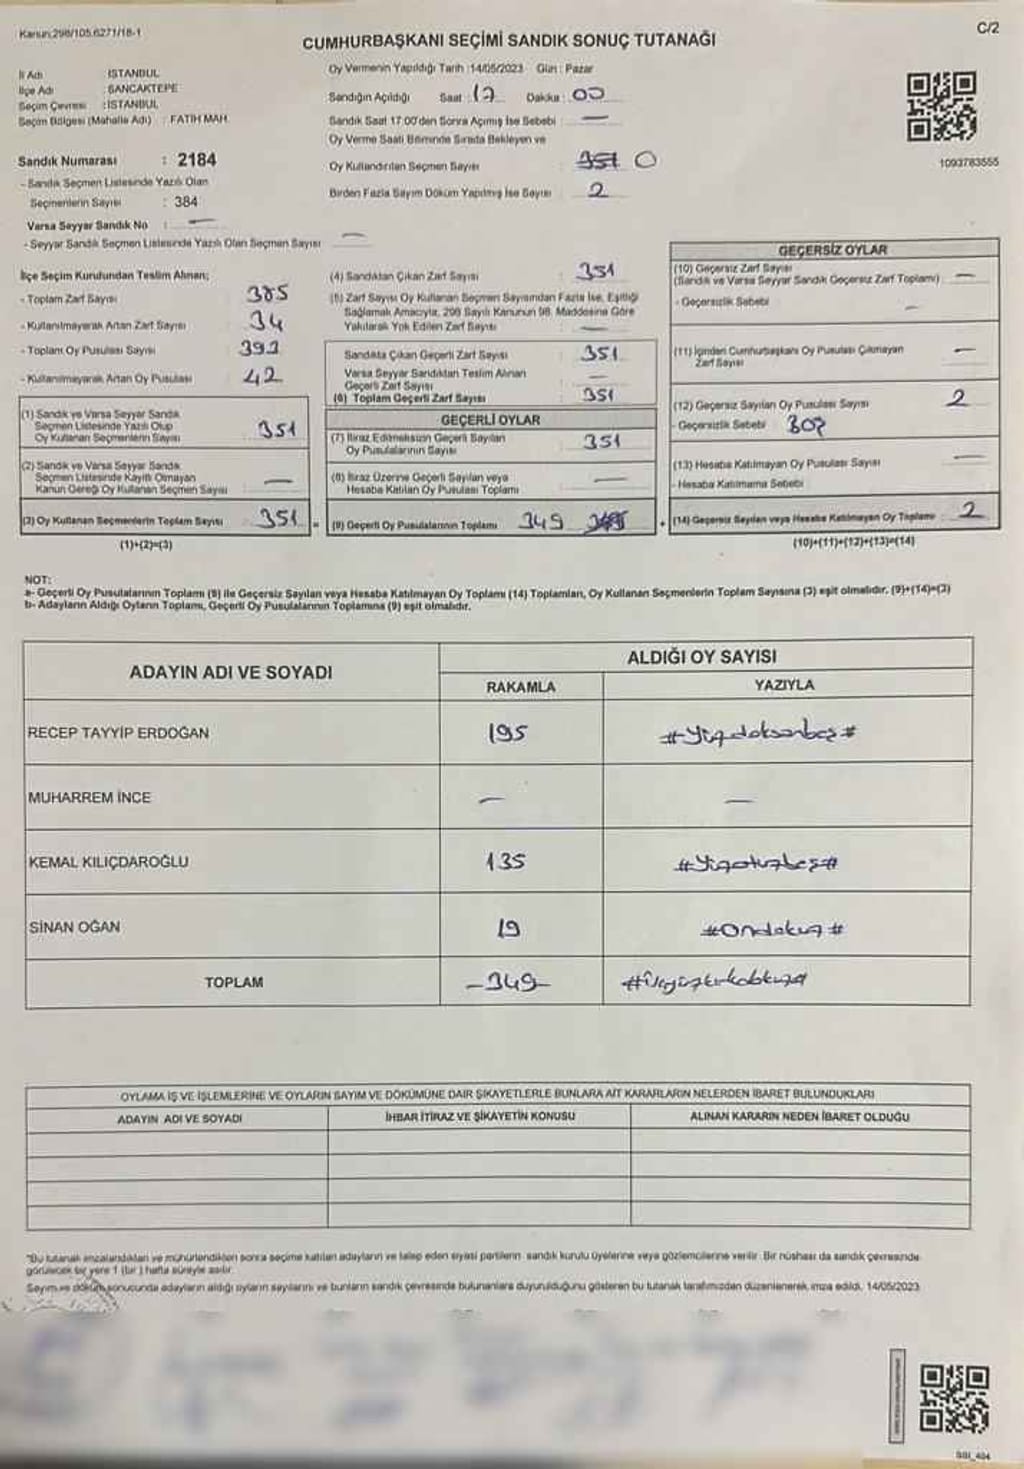 Kanun:298/105,6271/18-1
C/2
CUMHURBAŞKANI SEÇİMİ SANDIK SONUÇ TUTANAĞI
İl Adı : İSTANBUL
İlçe Adı : SANCAKTEPE
Seçim Çevresi : İSTANBUL
Seçim Bölgesi (Mahalle Adı) : FATİH MAH.
Sandık Numarası : 2184
- Sandık Seçmen Listesinde Yazılı Olan
Seçmenlerin Sayısı : 384
Varsa Seyyar Sandık No : —
- Seyyar Sandık Seçmen Listesinde Yazılı Olan Seçmen Sayısı —
Oy Vermenin Yapıldığı Tarih :14/05/2023 Gün : Pazar
Sandığın Açıldığı Saat : 17 Dakika : 00
Sandık Saat 17:00'den Sonra Açılmış İse Sebebi : —
Oy Verme Saati Bitiminde Sırada Bekleyen ve
Oy Kullandırılan Seçmen Sayısı : 351 0
Birden Fazla Sayım Döküm Yapılmış İse Sayısı : 2
1093783555
İlçe Seçim Kurulundan Teslim Alınan;
- Toplam Zarf Sayısı : 385
- Kullanılmayarak Artan Zarf Sayısı : 34
- Toplam Oy Pusulası Sayısı : 393
- Kullanılmayarak Artan Oy Pusulası : 42
(1) Sandık ve Varsa Seyyar Sandık
Seçmen Listesinde Yazılı Olup
Oy Kullanan Seçmenlerin Sayısı : 351
(2) Sandık ve Varsa Seyyar Sandık
Seçmen Listesinde Kayıtlı Olmayan
Kanun Gereği Oy Kullanan Seçmen Sayısı : —
(3) Oy Kullanan Seçmenlerin Toplam Sayısı : 351
(1)+(2)=(3)
(4) Sandıktan Çıkan Zarf Sayısı : 351
(5) Zarf Sayısı Oy Kullanan Seçmen Sayısından Fazla İse, Eşitliği
Sağlamak Amacıyla, 298 Sayılı Kanunun 98. Maddesine Göre
Yakılarak Yok Edilen Zarf Sayısı : —
Sandıkta Çıkan Geçerli Zarf Sayısı : 351
Varsa Seyyar Sandıktan Teslim Alınan
Geçerli Zarf Sayısı : —
(6) Toplam Geçerli Zarf Sayısı : 351
GEÇERLİ OYLAR
(7) İtiraz Edilmeksizin Geçerli Sayılan
Oy Pusulalarının Sayısı : 351
(8) İtiraz Üzerine Geçerli Sayılan veya
Hesaba Katılan Oy Pusulası Toplamı : —
= (9) Geçerli Oy Pusulalarının Toplamı : 349
GEÇERSİZ OYLAR
(10) Geçersiz Zarf Sayısı
(Sandık ve Varsa Seyyar Sandık Geçersiz Zarf Toplamı) : —
- Geçersizlik Sebebi : —
(11) İçinden Cumhurbaşkanı Oy Pusulası Çıkmayan
Zarf Sayısı : —
(12) Geçersiz Sayılan Oy Pusulası Sayısı : 2
- Geçersizlik Sebebi :
(13) Hesaba Katılmayan Oy Pusulası Sayısı : —
- Hesaba Katılmama Sebebi :
+ (14) Geçersiz Sayılan veya Hesaba Katılmayan Oy Toplamı : 2
(10)+(11)+(12)+(13)=(14)
NOT:
a- Geçerli Oy Pusulalarının Toplamı (9) ile Geçersiz Sayılan veya Hesaba Katılmayan Oy Toplamı (14) Toplamları, Oy Kullanan Seçmenlerin Toplam Sayısına (3) eşit olmalıdır. (9)+(14)=(3)
b- Adayların Aldığı Oyların Toplamı, Geçerli Oy Pusulalarının Toplamına (9) eşit olmalıdır.
ADAYIN ADI VE SOYADI
ALDIĞI OY SAYISI
RAKAMLA YAZIYLA
RECEP TAYYİP ERDOĞAN 195 #Yüzdoksanbeş#
MUHARREM İNCE — —
KEMAL KILIÇDAROĞLU 135 #Yüzotuzbeş#
SİNAN OĞAN 19 #Ondokuz#
TOPLAM -349- #Üçyüzkırkdokuz#
OYLAMA İŞ VE İŞLEMLERİNE VE OYLARIN SAYIM VE DÖKÜMÜNE DAİR ŞİKAYETLERLE BUNLARA AİT KARARLARIN NELERDEN İBARET BULUNDUKLARI
ADAYIN ADI VE SOYADI İHBAR İTİRAZ VE ŞİKAYETİN KONUSU ALINAN KARARIN NEDEN İBARET OLDUĞU
*Bu tutanak imzalandıktan ve mühürlendikten sonra seçime katılan adayların ve talep eden siyasi partilerin sandık kurulu üyelerine veya gözlemcilerine verilir. Bir nüshası da sandık çevresinde
görülecek bir yere 1 (bir) hafta süreyle asılır.
Sayım ve döküm sonucunda adayların aldığı oyların sayılarını ve bunların sandık çevresinde bulunanlara duyurulduğunu gösteren bu tutanak tarafımızdan düzenlenerek imza edildi. 14/05/2023